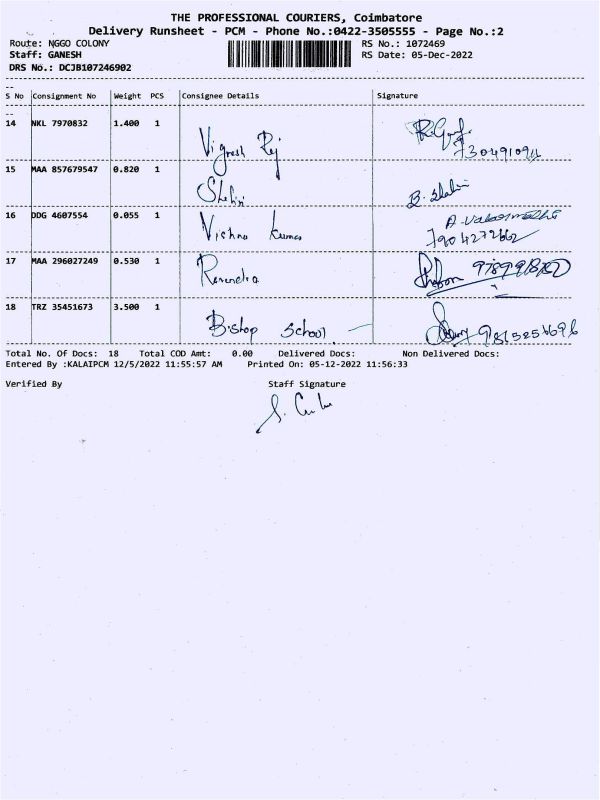 THE PROFESSIONAL COURIERS, Coimbatore
Delivery Runsheet - PCM - Phone No.:0422-3505555 - Page No.:2
Route: NGGO COLONY RS No.: 1072469
Staff: GANESH RS Date: 05-Dec-2022
DRS No.: DCJB107246902
S No Consignment No Weight PCS Consignee Details Signature
14 NKL 7970832 1.400 1 Vignesh Raj
15 MAA 857679547 0.820 1 Shalini B. Shalini
16 DDG 4607554 0.055 1 Vishnu Kumar
7904272662
17 MAA 296027249 0.530 1
18 TRZ 35451673 3.500 1 Bishop School
Total No. Of Docs: 18 Total COD Amt: 0.00 Delivered Docs: Non Delivered Docs:
Entered By :KALAIPCM 12/5/2022 11:55:57 AM Printed On: 05-12-2022 11:56:33
Verified By Staff Signature